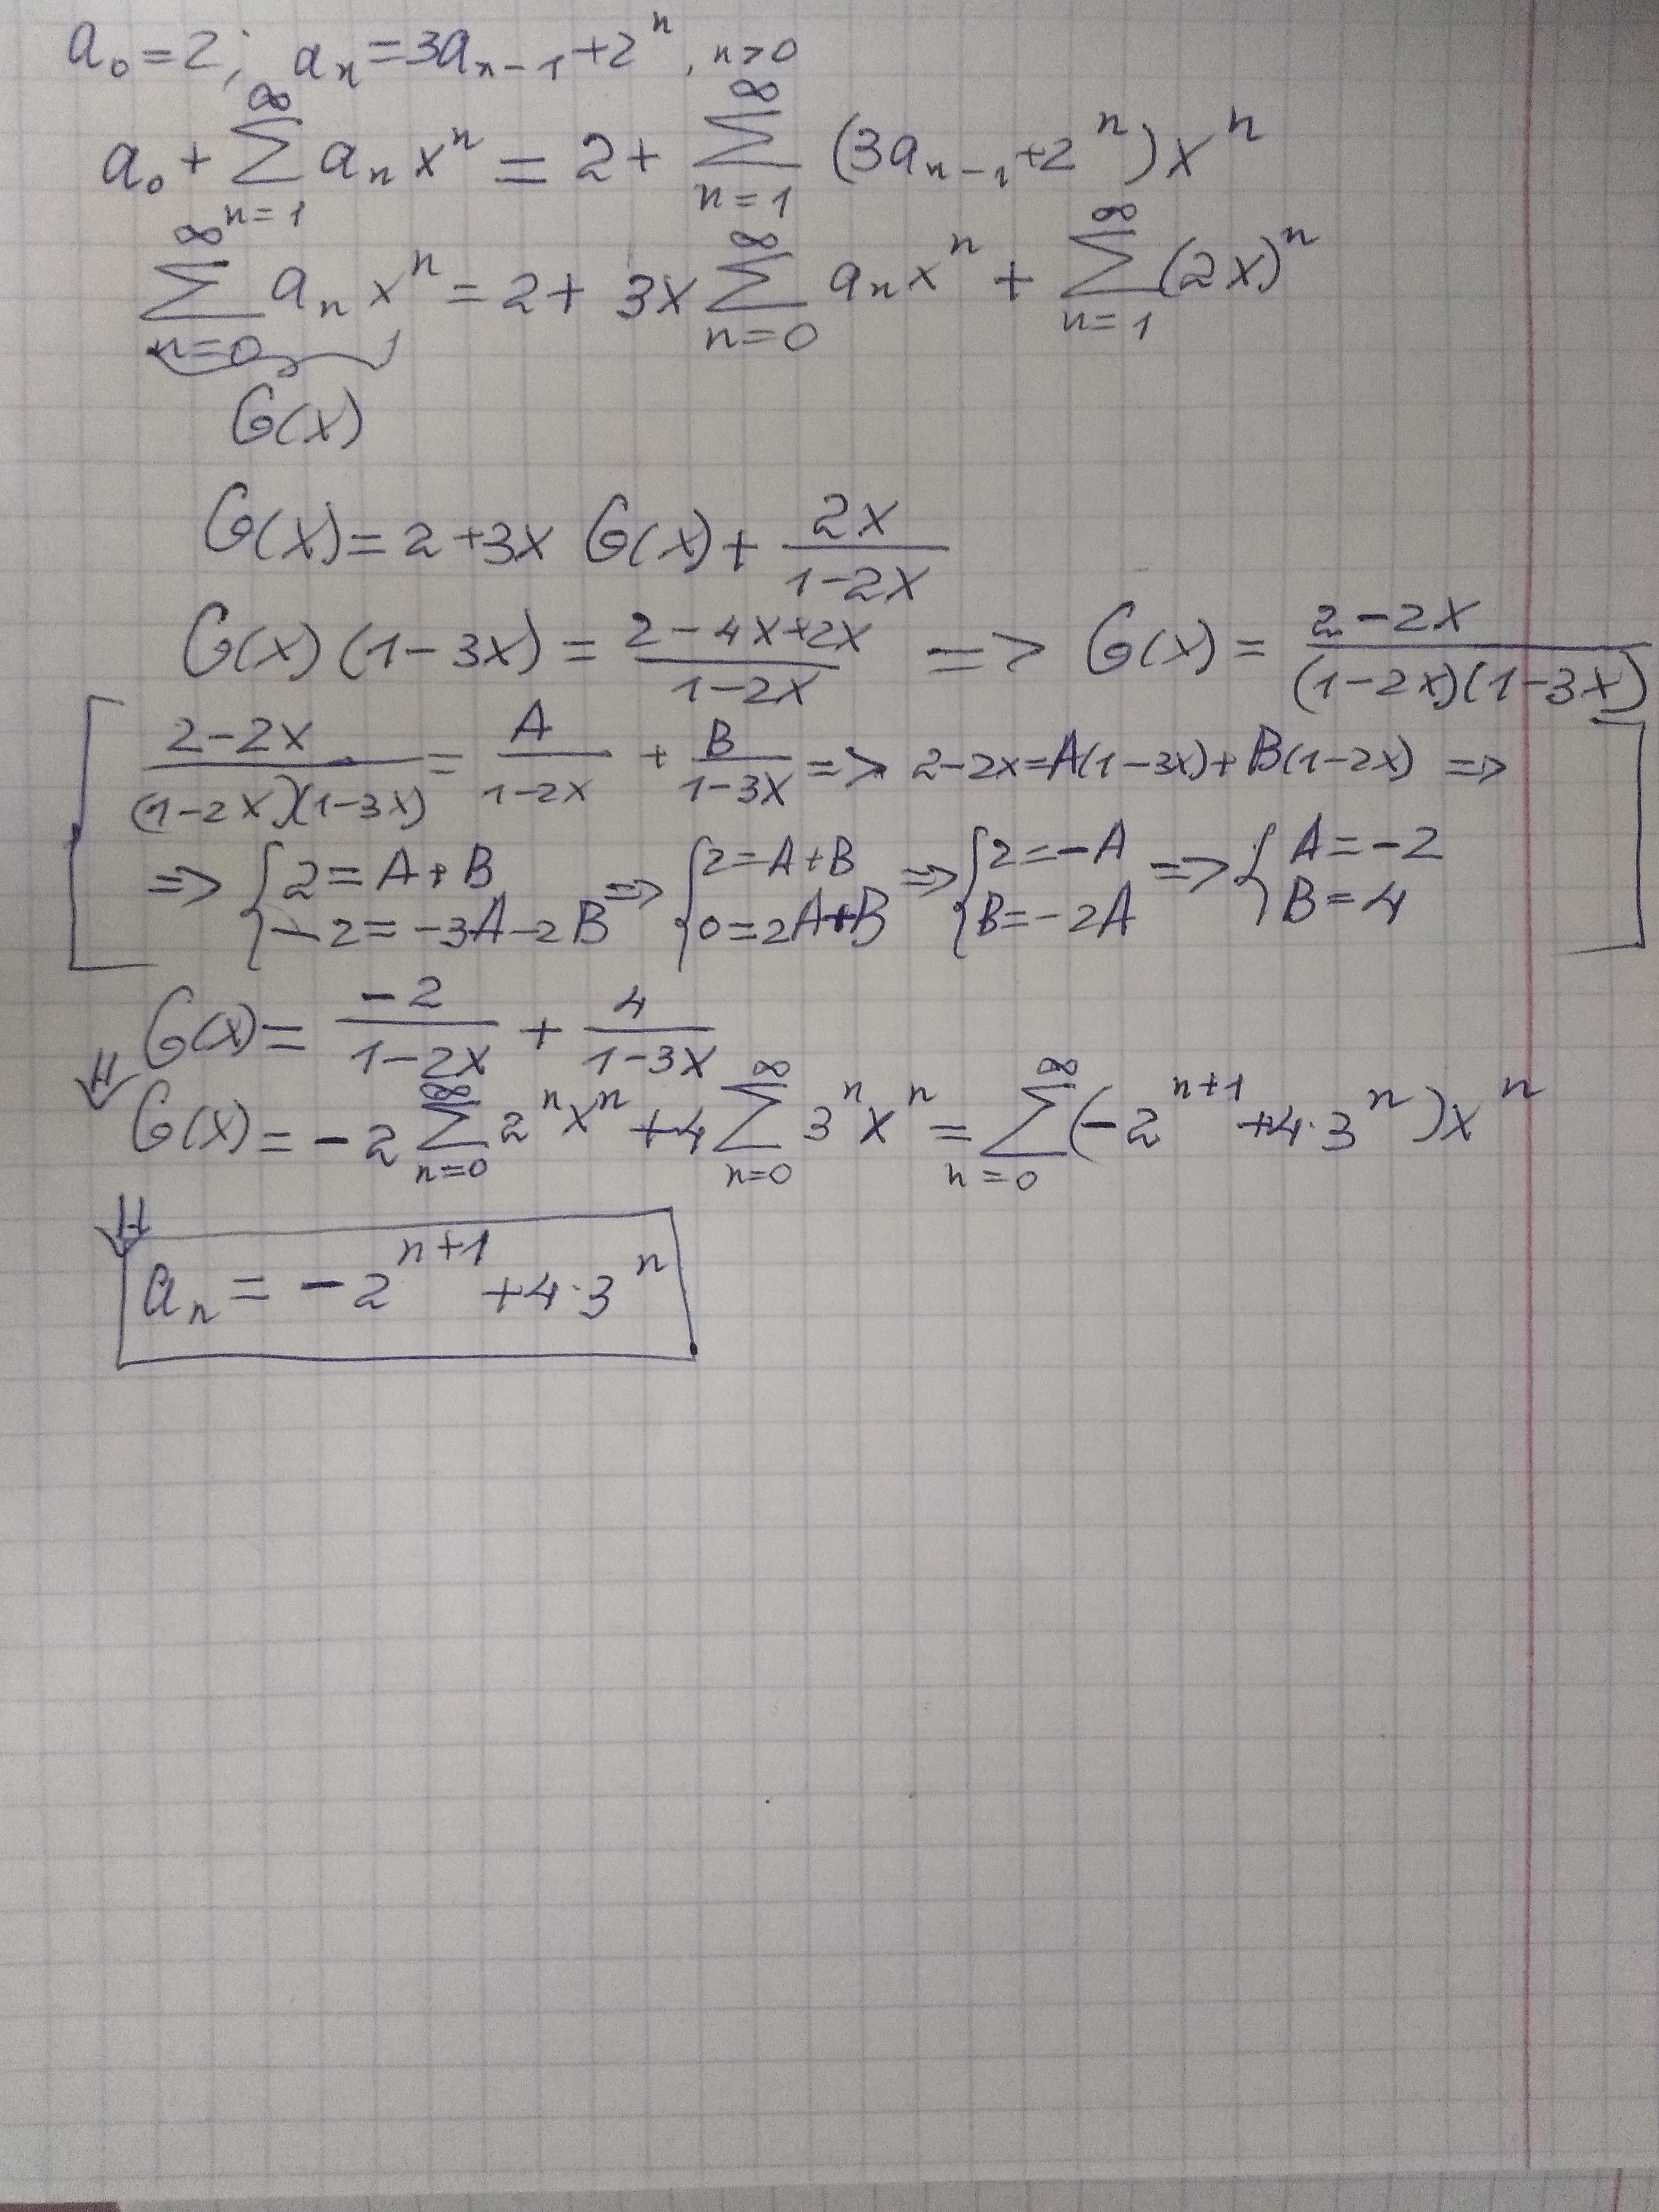 a₀ = 2; aₙ = 3aₙ₋₁ + 2ⁿ, n > 0
a₀ + ∑_{n=1}^{∞} aₙ xⁿ = 2 + ∑_{n=1}^{∞} (3aₙ₋₁ + 2ⁿ) xⁿ
∑_{n=0}^{∞} aₙ xⁿ = 2 + 3x ∑_{n=0}^{∞} aₙ xⁿ + ∑_{n=1}^{∞} (2x)ⁿ
G(x)
G(x) = 2 + 3x G(x) + \frac{2x}{1-2x}
G(x) (1-3x) = \frac{2-4x+2x}{1-2x} => G(x) = \frac{2-2x}{(1-2x)(1-3x)}
[ \frac{2-2x}{(1-2x)(1-3x)} = \frac{A}{1-2x} + \frac{B}{1-3x} => 2-2x = A(1-3x) + B(1-2x) =>
=> { 2 = A+B ; -2 = -3A-2B => { 2 = A+B ; 0 = 2A+B => { 2 = -A ; B = -2A => { A = -2 ; B = 4 ]
G(x) = \frac{-2}{1-2x} + \frac{4}{1-3x}
⇓ G(x) = -2 ∑_{n=0}^{∞} 2ⁿxⁿ + 4 ∑_{n=0}^{∞} 3ⁿxⁿ = ∑_{n=0}^{∞} (-2ⁿ⁺¹ + 4·3ⁿ) xⁿ
⇓ aₙ = -2ⁿ⁺¹ + 4·3ⁿ